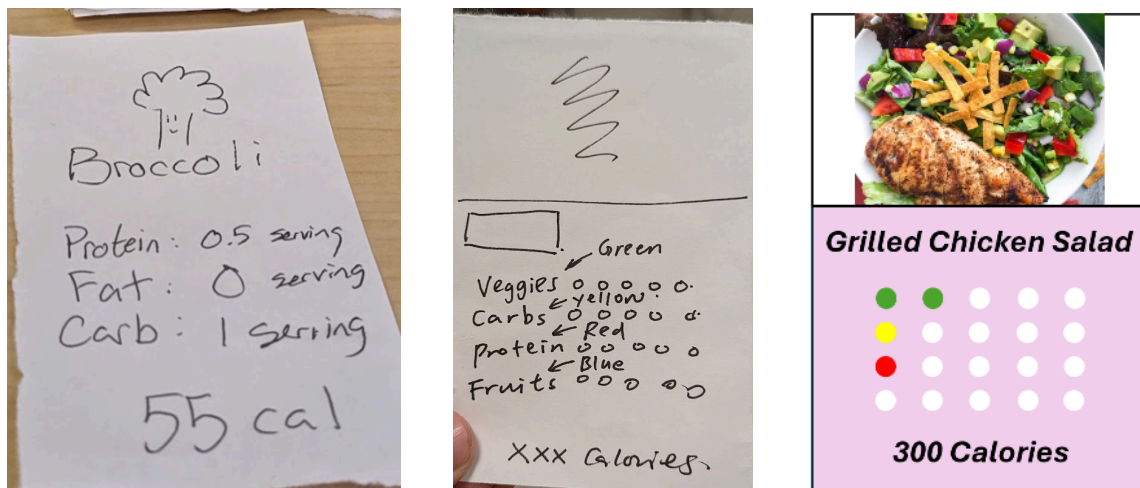 Broccoli
Protein: 0.5 serving
Fat: 0 serving
Carb: 1 serving
55 cal
Green
Veggies
yellow.
Carbs
Red
Protein
Blue
Fruits
XXX Calories.
Grilled Chicken Salad
300 Calories